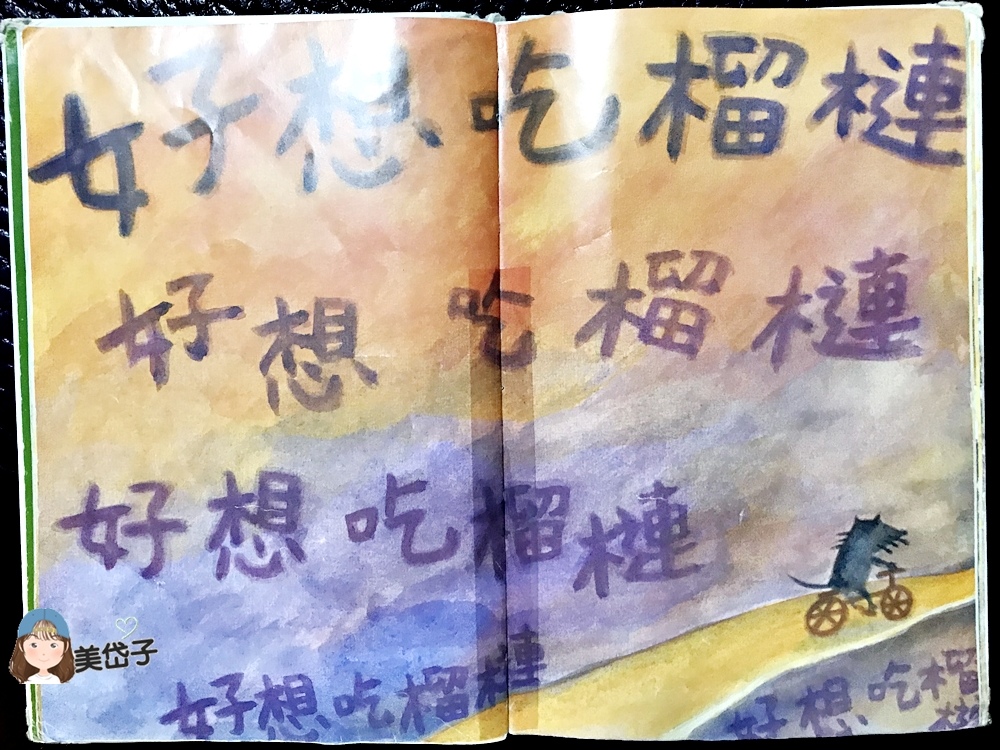 好想吃榴槤
好想吃榴槤
好想吃榴槤
好想吃榴槤
好想吃榴槤
美岱子